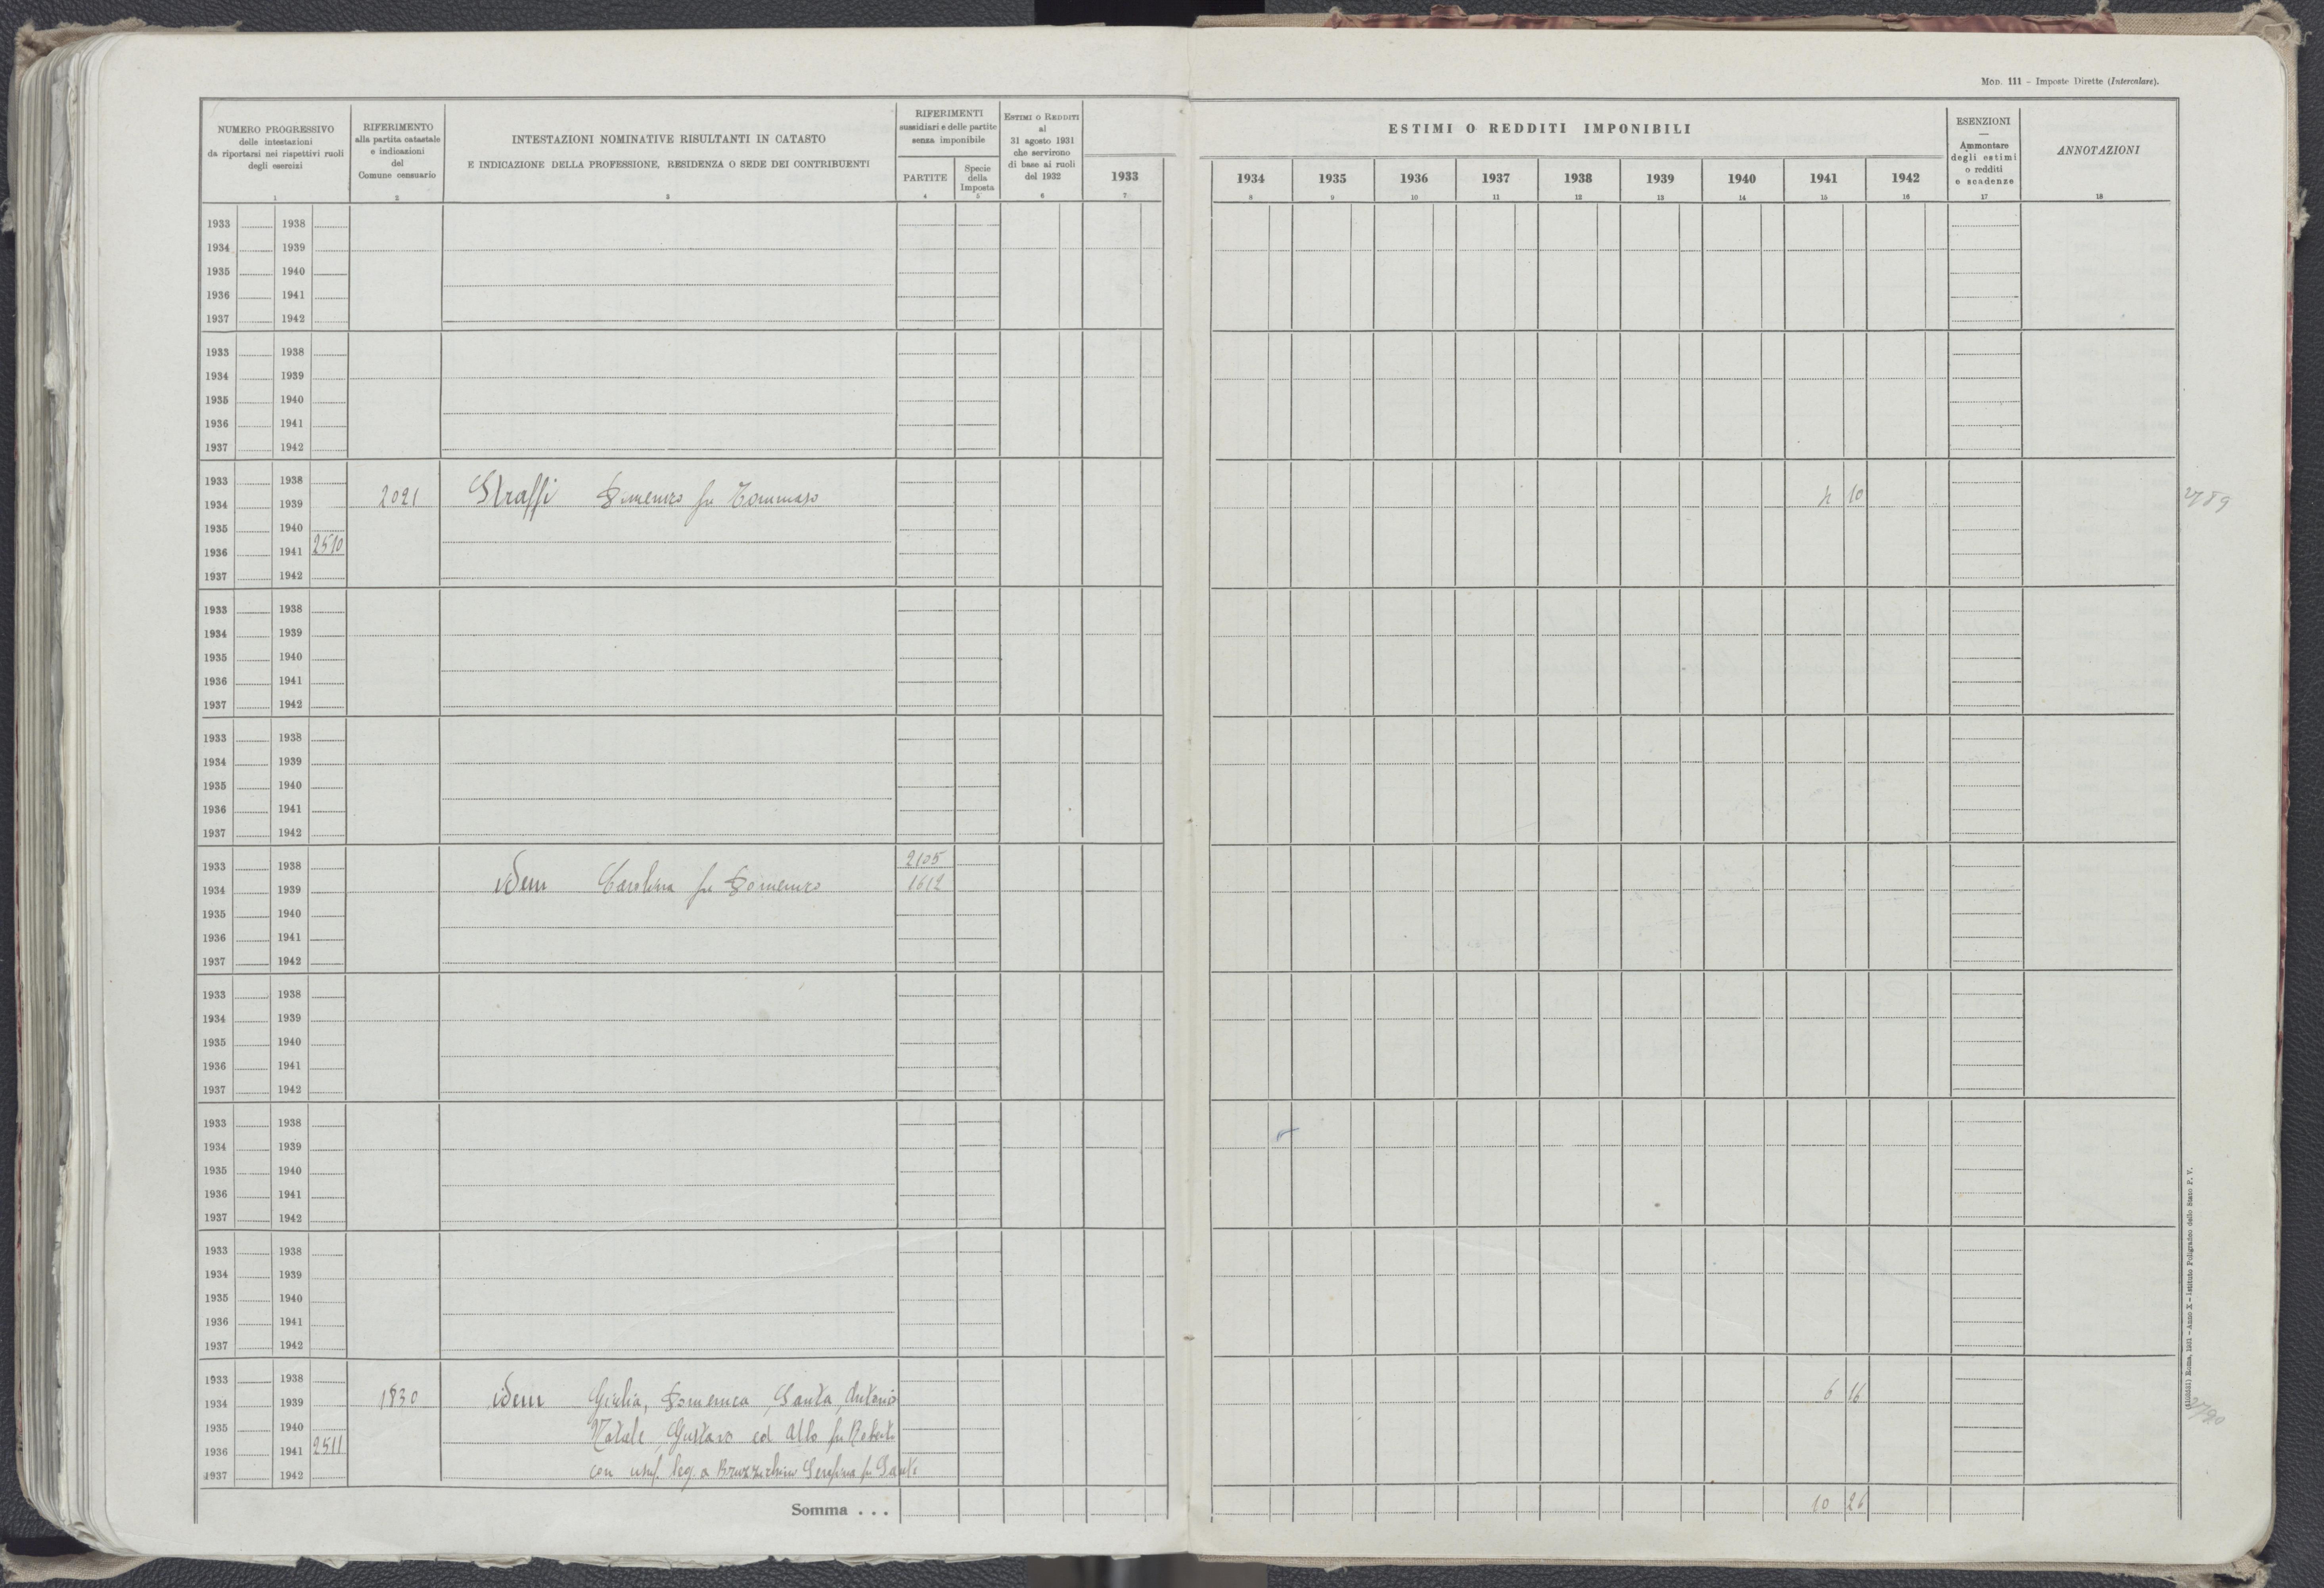 MOD. 111 - Imposte Dirette (Intercalare).
NUMERO PROGRESSIVO
delle intestazioni
da riportarsi nei rispettivi ruoli
degli esercizi
1
RIFERIMENTO
alla partita catastale
e indicazioni
del
Comune censuario
2
INTESTAZIONI NOMINATIVE RISULTANTI IN CATASTO
E INDICAZIONE DELLA PROFESSIONE, RESIDENZA O SEDE DEI CONTRIBUENTI
3
RIFERIMENTI
sussidiari e delle partite
senza imponibile
PARTITE
4
Specie
della
Imposta
5
ESTIMI O REDDITI
al
31 agosto 1931
che servirono
di base ai ruoli
del 1932
6
ESTIMI O REDDITI IMPONIBILI
1933 1934 1935 1936 1937 1938 1939 1940 1941 1942
7 8 9 10 11 12 13 14 15 16
ESENZIONI
—
Ammontare
degli estimi
o redditi
e scadenze
17
ANNOTAZIONI
18
1933 1938
1934 1939
1935 1940
1936 1941
1937 1942
1933 1938
1934 1939
1935 1940
1936 1941
1937 1942
1933 1938
1934 1939 2021 Straffi Domenico fu Tommaso 4 10 2789
1935 1940
1936 1941 2510
1937 1942
1933 1938
1934 1939
1935 1940
1936 1941
1937 1942
1933 1938
1934 1939
1935 1940
1936 1941
1937 1942
1933 1938 2105
1934 1939 idem Carolina fu Domenico 1612
1935 1940
1936 1941
1937 1942
1933 1938
1934 1939
1935 1940
1936 1941
1937 1942
1933 1938
1934 1939
1935 1940
1936 1941
1937 1942
1933 1938
1934 1939
1935 1940
1936 1941
1937 1942
1933 1938
1934 1939 1830 idem Giulia, Domenica, Santa, Antonio 6 16
1935 1940 Natale, Gustavo ed Aldo fu Roberto 2790
1936 1941 2511
1937 1942 con usuf. leg. a Serafina fu Sante
Somma . . . 10 26
Roma, 1931 - Anno X - Istituto Poligrafico dello Stato P. V.